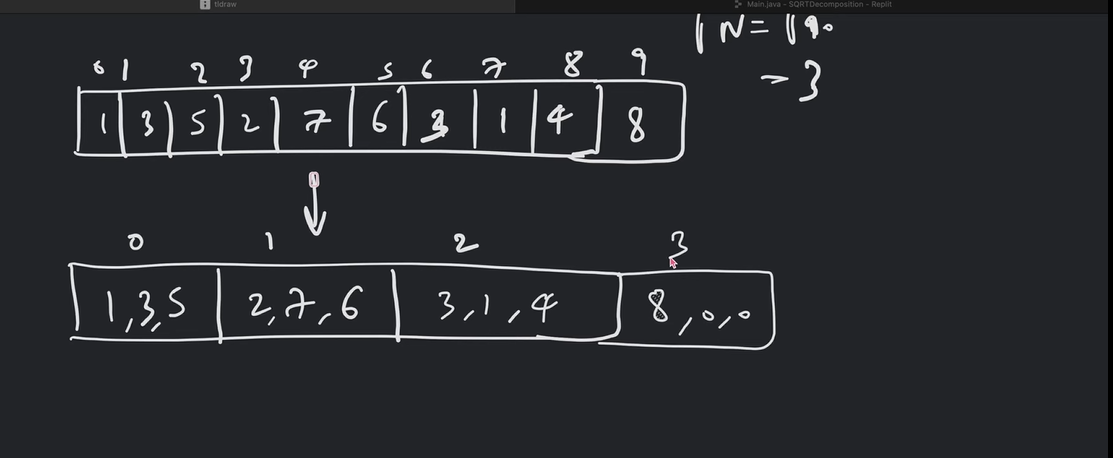 tldraw Main.java - SQRTDecomposition - Replit
N=
3
0 1 2 3 4 5 6 7 8 9
1 3 5 2 7 6 3 1 4 8
0 1 2 3
1,3,5 2,7,6 3,1,4 8,0,0